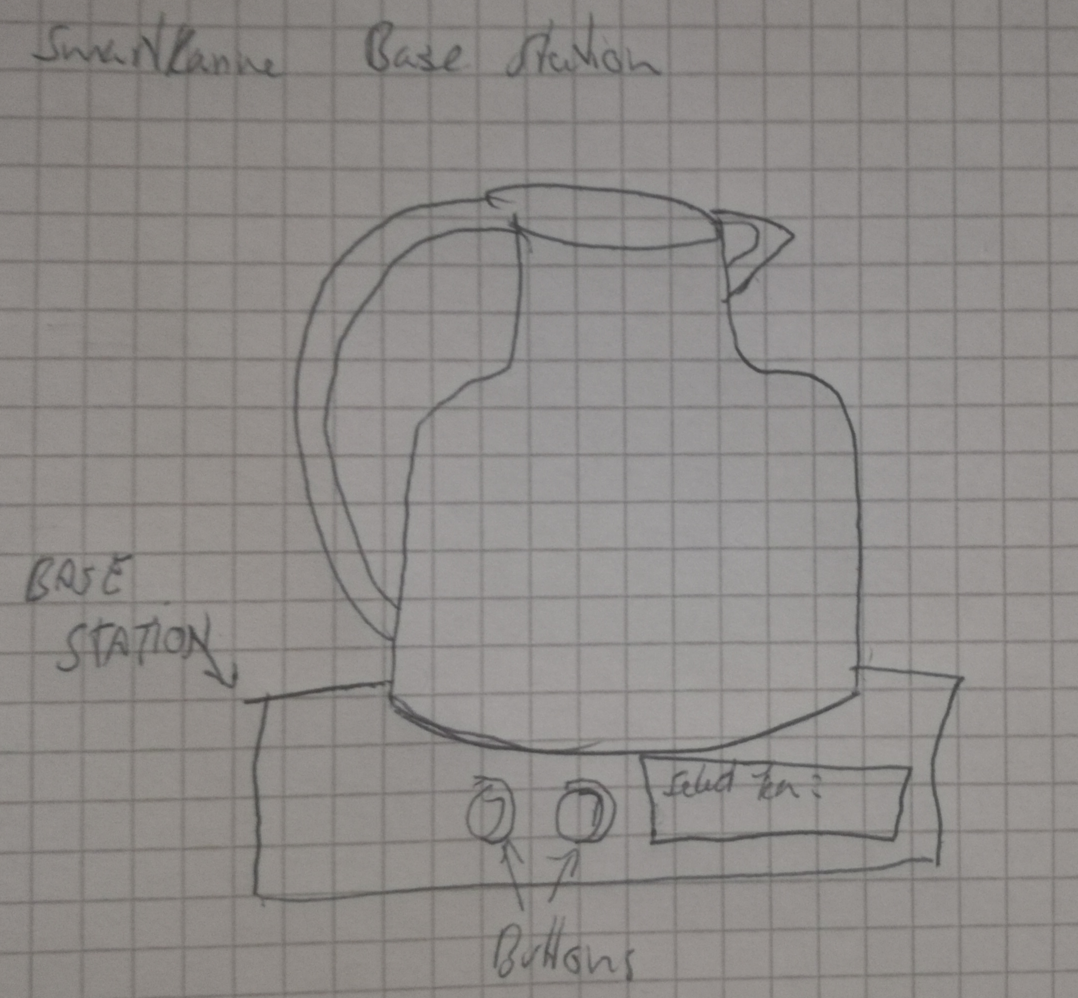 SmartKanne Base Station
BASE
STATION
Select Tea:
Buttons